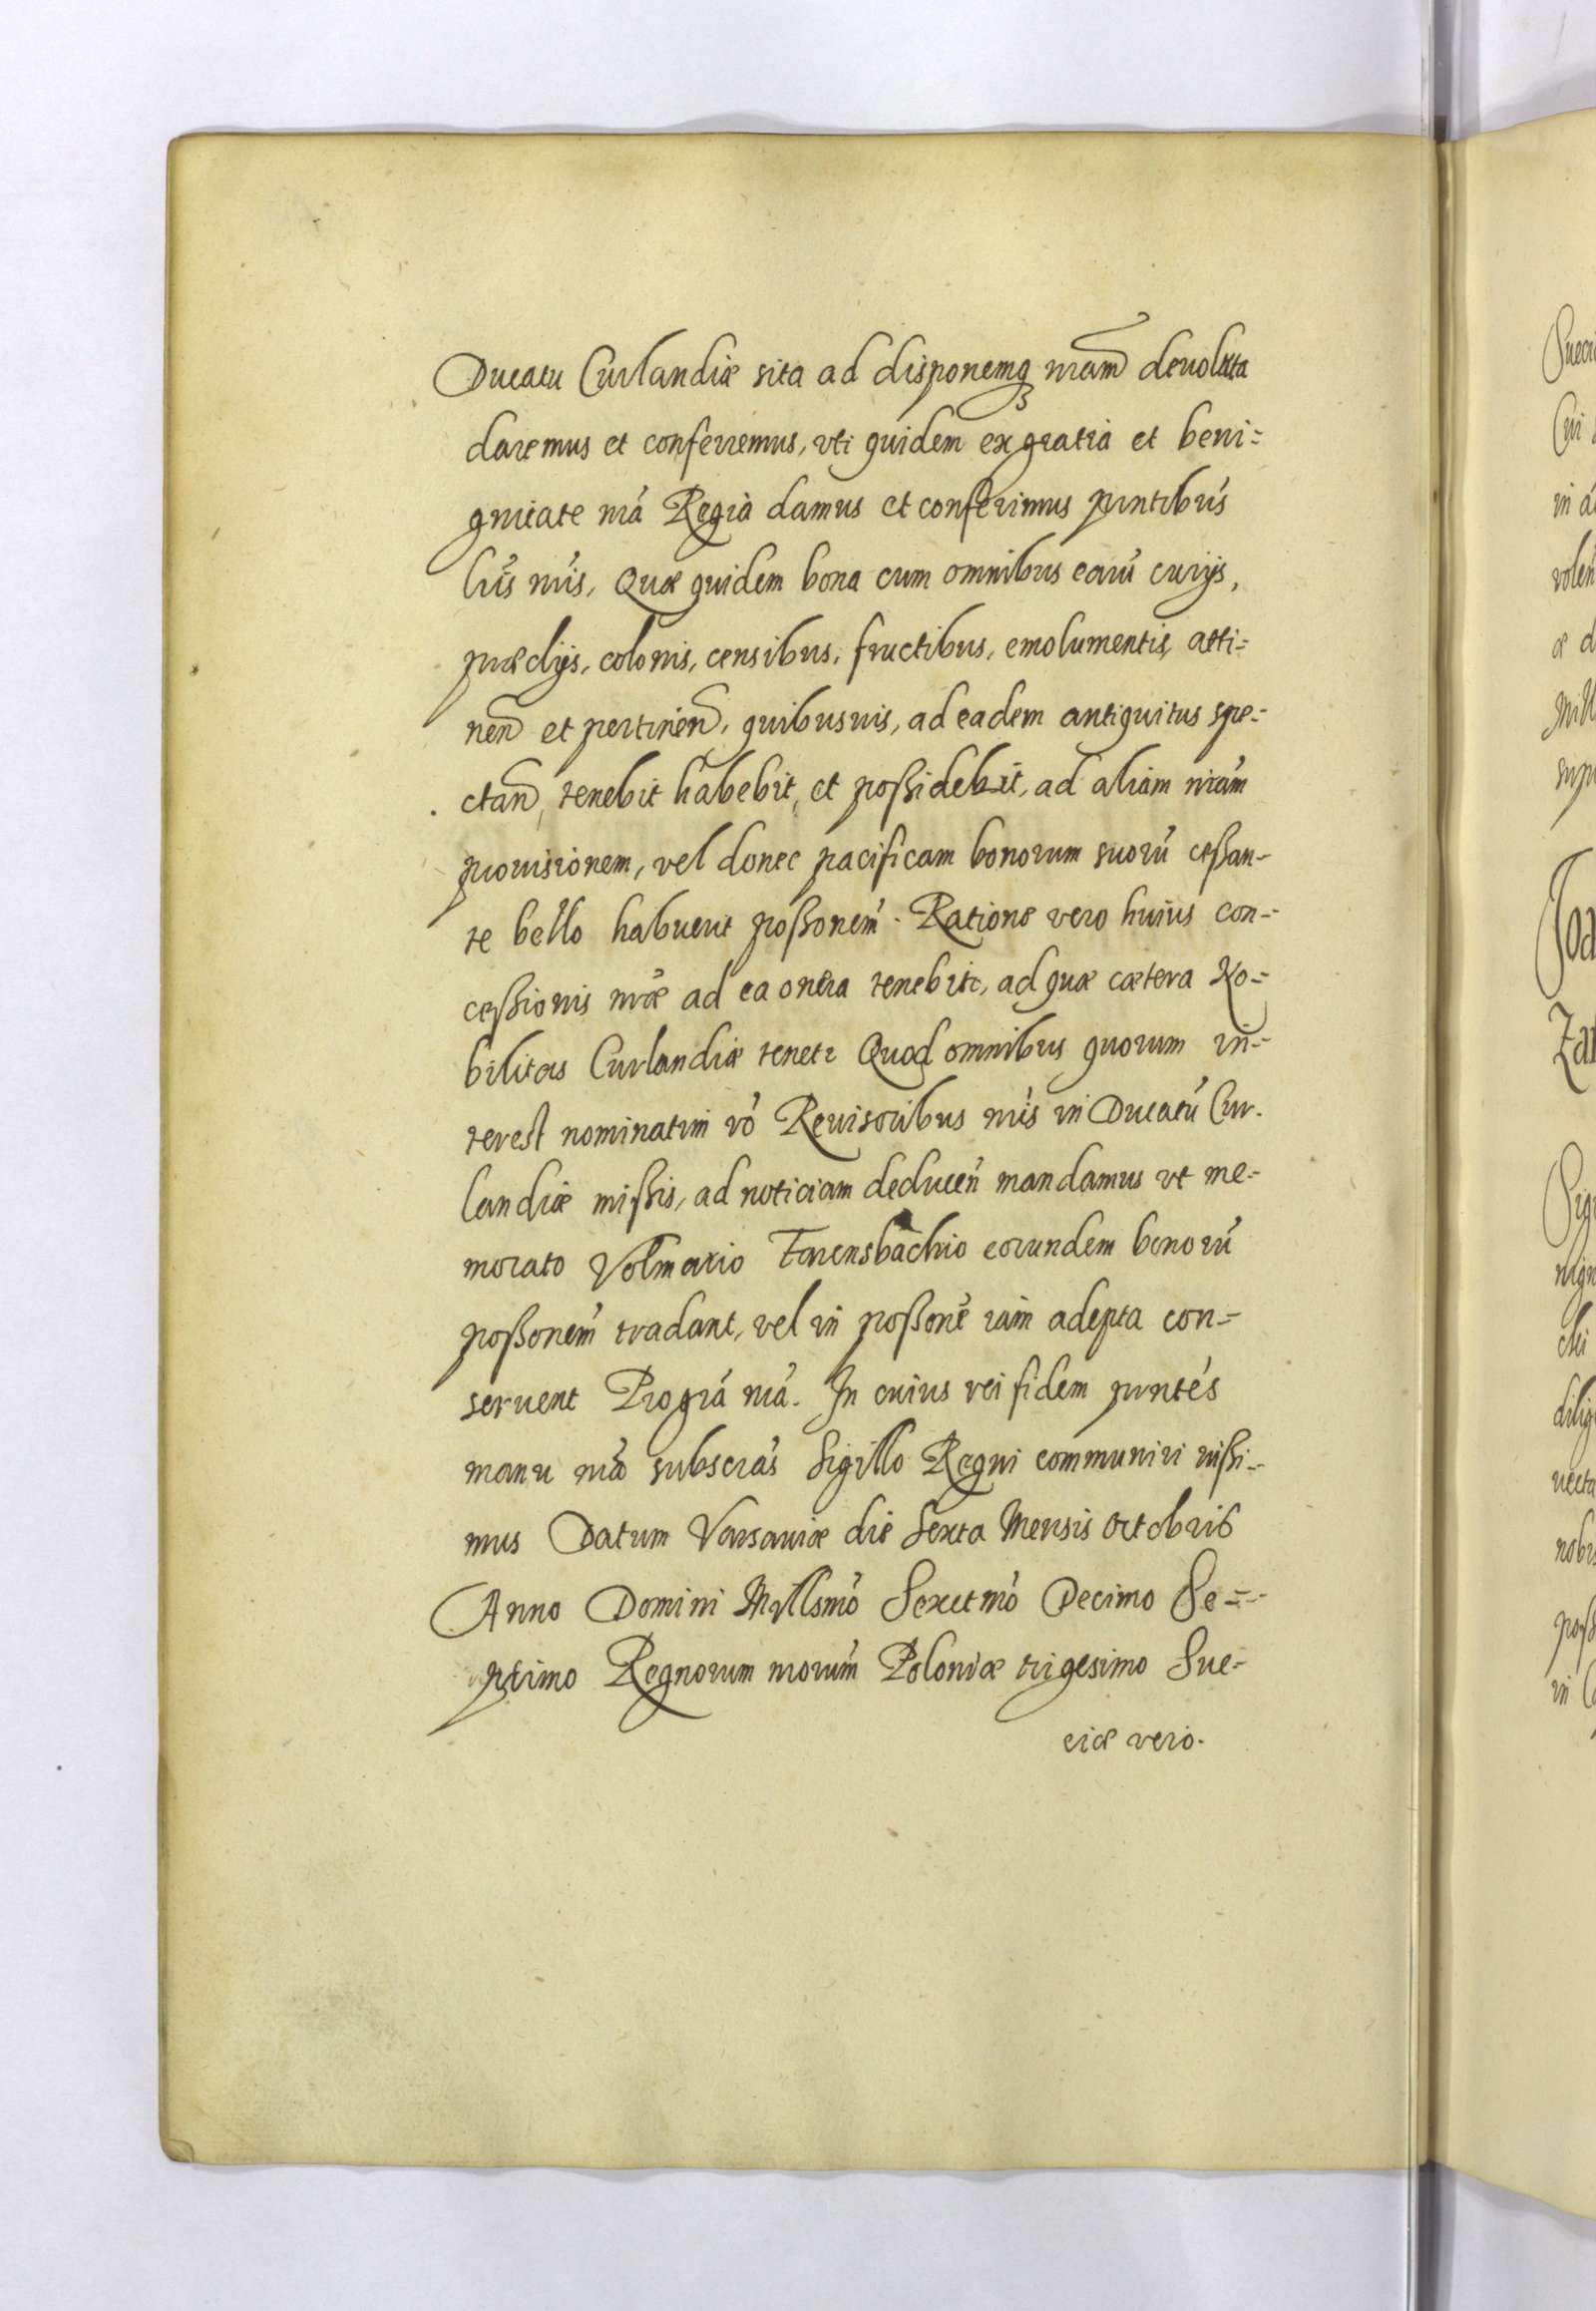 Ducatu Curlandiæ sita ad disponemq₃ nram̃ deuoluta
daremus et conferremus, vti quidem ex gratia et beni=
gnitate nrã Regia damus et conferimus pnntibus̃
lris̃ nris̃, Quæ quidem bona cum omnibus earũ curijs,
prædijs, colonis, censibus, fructibus, emolumentis, atti=
neñ et pertineñ, quibusuis, ad eadem antiquitus spe=
ctañ, tenebit habebit, et possidebit, ad aliam nram̃
prouisionem, vel donec pacificam bonorum suorũ cessan=
te bello habuerit possonem̃. Ratione vero huius con=
cessionis nræ̃ ad ea onera tenebitr, ad quæ cætera No=
bilitas Curlandiæ tenetr Quod omnibus quorum in=
terest nominatim võ Reuisoribus nris̃ in Ducatũ Cur=
landiæ missis, ad noticiam deduceñ mandamus vt me=
morato Volmario Farensbachio eorundem bonorũ
possonem̃ tradant, vel in possonẽ iam adepta con=
seruent Pro grã nrã. In cuius rei fidem pnntes̃
manu nrã subscras̃ Sigillo Regni communiri iussi=
mus Datum Varsauiæ die Sexta Mensis Octobris
Anno Domini Millsmõ Sexctmõ Decimo Se=
ptimo Regnorum nrorum̃ Poloniæ trigesimo Sue=
ciæ vero.